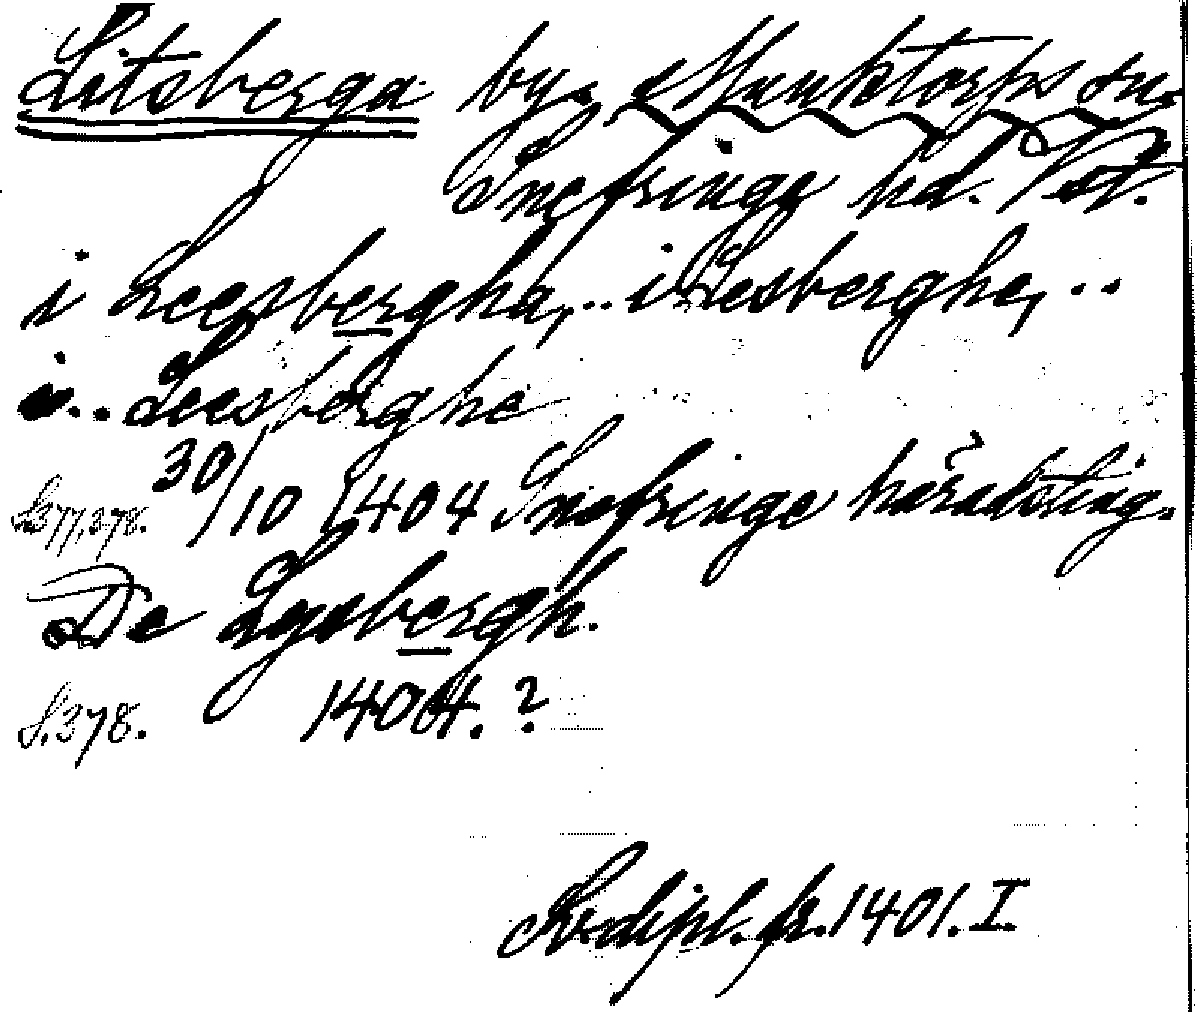 Litsberga by, Munktorps sn,
Snefringe hd. Vstm.
i Leesbergha, .. i Lesberghe, ..
i .. Leesberghe
S. 377, 378. 30/10 1404 Snefringe häradsting.
De Lysbergh.
S. 378. 1404. ?
Sv. dipl. fr. 1401. I.